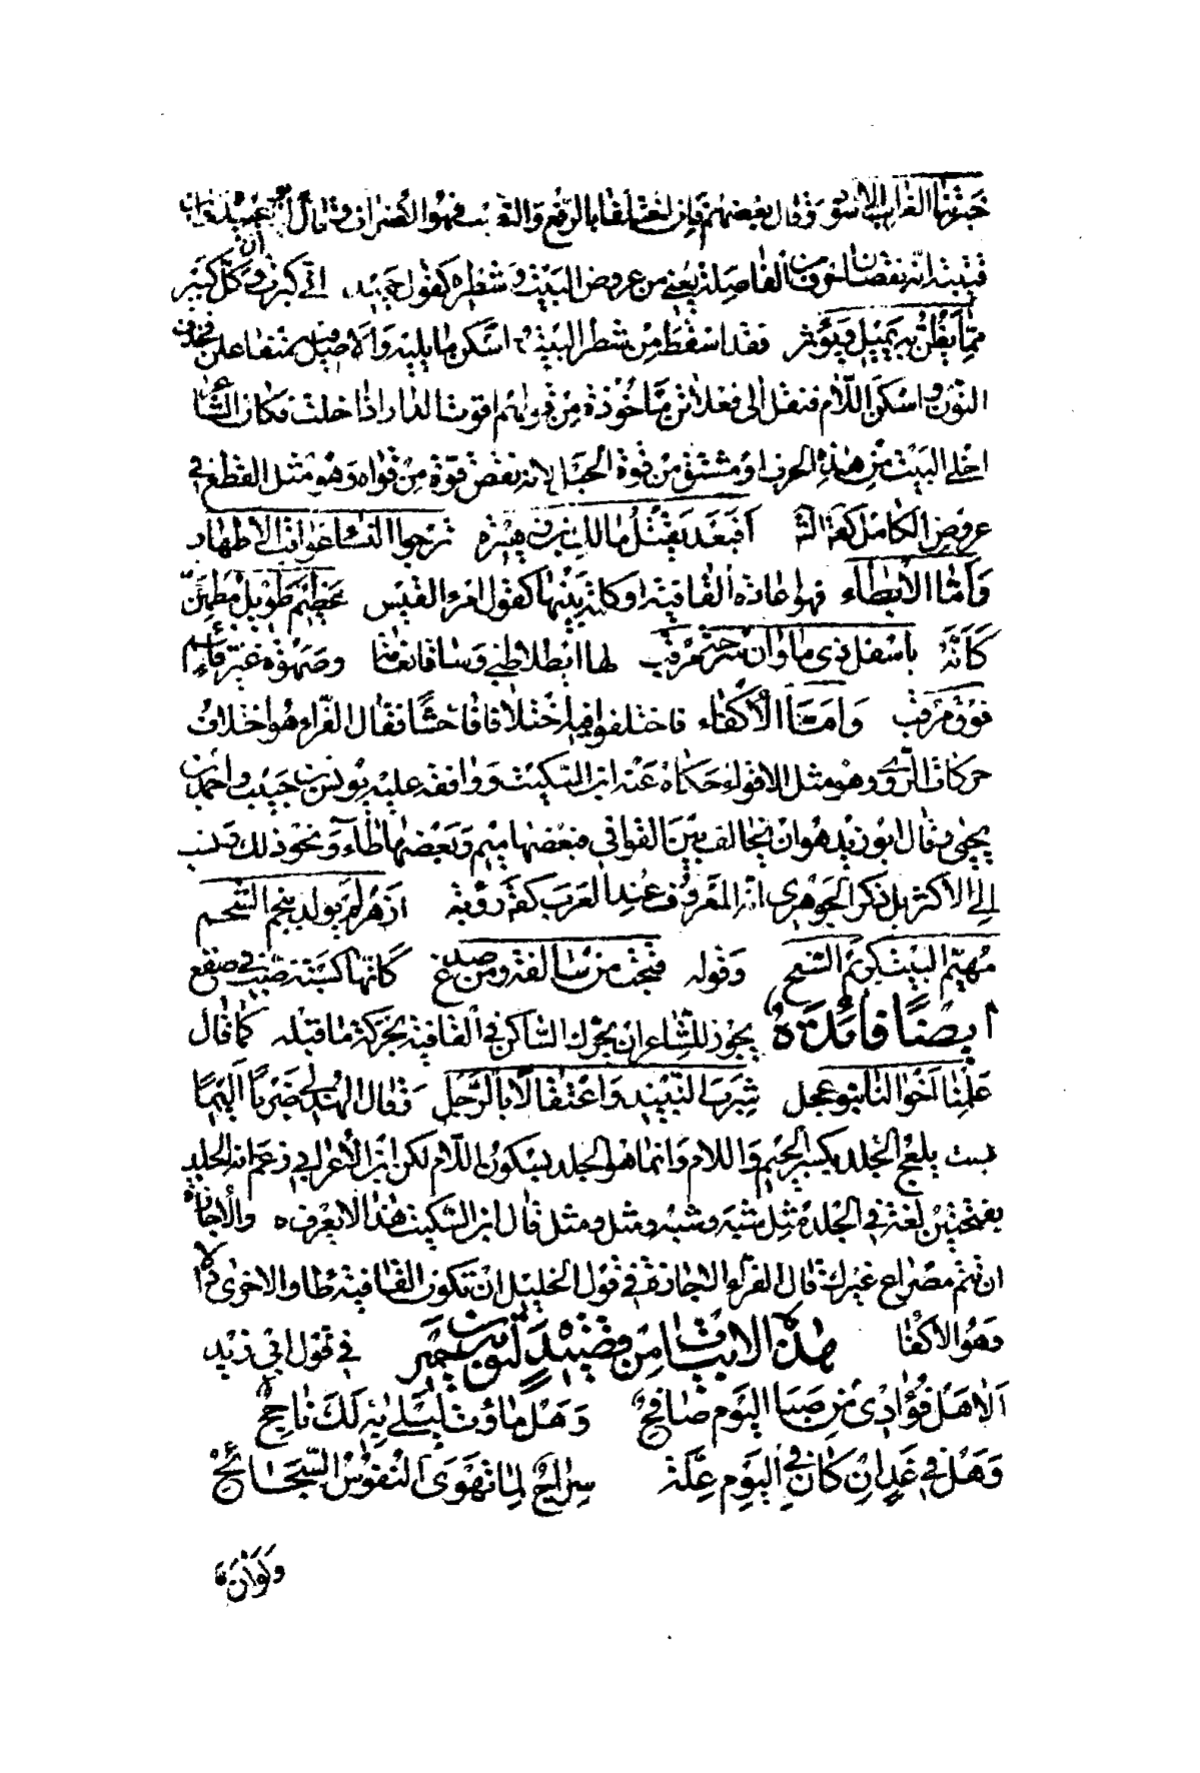 خبرنها الغراب الاسود وقال بعضهم فان اختلفا بالرفع والنصب فهو الاصراف وقال ابو عبيدة
قتيبة انه نقصان حرف من الفاصلة يعني من عروض البيت وشطره كقول حميد اني كبرت وان كل كبير
مما يظن به يميل ويؤثر فقد اسقط من شطر البيت اسكن ما يليه والاصل متفاعلن فحذف
النون واسكن اللام فنقل الى فعلاتن مأخوذة من قولهم اقوت الدار اذا خلت فكان الشاعر
اخلى البيت من هذا الحرف او مشتق من قوة الحبل لانه نقص قوة من قواه وهو مثل القطع في
عروض الكامل كقوله افبعد مقتل مالك بن زهير ترجوا النساء عواقب الاطهار
واما الايطاء فهو اعادة القافية وكان يثنيها كقول امرئ القيس عظيم طويل مطمئن
كأنه باسفل ذى ماوان سرحة مرقب لها ايطلا ظبي وساقا نعامة وصهوة عير قائم
فوق مرقب واما الاكفاء فاختلفوا فيه اختلافا فاحشا فقال الفراء هو اختلاف
حركات الروى وهو مثل الاقواء حكاه عنه ابن السكيت ووافقه عليه يونس بن حبيب واحمد بن
يحيى وقال ابو زيد هو ان يخالف بين القوافي فبعضها ميم وبعضها طاء ونحو ذلك ونسب
الى الاكثر بل ذكر الجوهرى انه المعروف عند العرب كقول رؤبة ازهر لم يولد بنجم الشح
ميمم البيت كريم السنح وقوله قبحت من سالفة ومن صدغ كأنها كشية ضب في صقع
ايضا فائدة يجوز للشاعر ان يحرك الساكن في القافية بحركة ما قبله كما قال
علمنا اخوالنا بنو عجل شرب النبيذ واعتقالا بالرجل وقال الهذلي ضربا اليما
بسبت يلعج الجلد بكسر الجيم واللام وانما هو الجلد بسكون اللام لكن ابن الاعرابي زعم ان الجلد
بفتحتين لغة في الجلد مثل شبه وشبه ومثل ومثل قال ابن السكيت هذا لا يعرف والاجازة
ان تتم مصراع غيرك قال الفراء الاجازة في قول الخليل ان تكون القافية طا والاخرى دالا
وهو الاكفا هذه الابيات من قصيد لتوبة بن حمير في قول ابي زيد
الا هل فؤادى من صبا اليوم صافح وهل ما وأت ليلى به لك ناجح
وهل في غد ان كان في اليوم علة سراح لما تهوى النفوس الشحائح
ولو ان